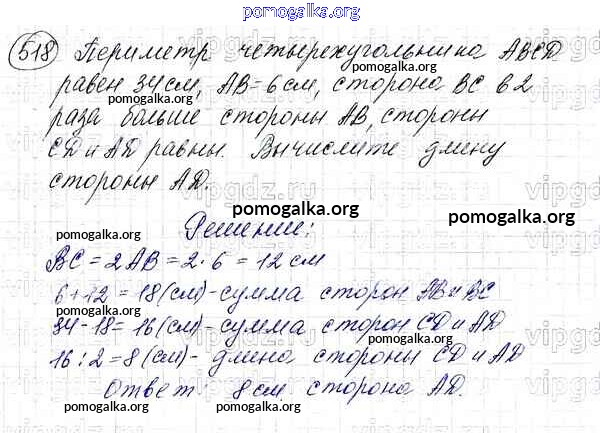 pomogalka.org
518 Периметр четырехугольника ABCD
равен 34 см, AB = 6 см, сторона BC в 2
pomogalka.org pomogalka.org
раза больше стороны AB, стороны
CD и AD равны. Вычислите длину
стороны AD.
vipgdz.ru
pomogalka.org
Решение:
pomogalka.org
pomogalka.org
BC = 2AB = 2 · 6 = 12 см
6 + 12 = 18 (см) - сумма сторон AB и BC
pomogalka.org pomogalka.org
34 - 18 = 16 (см) - сумма сторон CD и AD
pomogalka.org pomogalka.org
16 : 2 = 8 (см) - длина стороны CD и AD
Ответ: 8 см сторона AD.
pomogalka.org pomogalka.org pomogalka.org